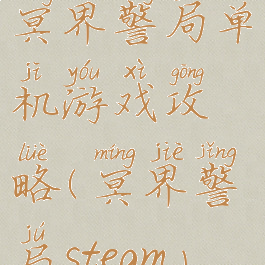 冥界警局单
jī yóu xì gōng
机游戏攻
lüè míng jiè jǐng
略(冥界警
jú
局steam)